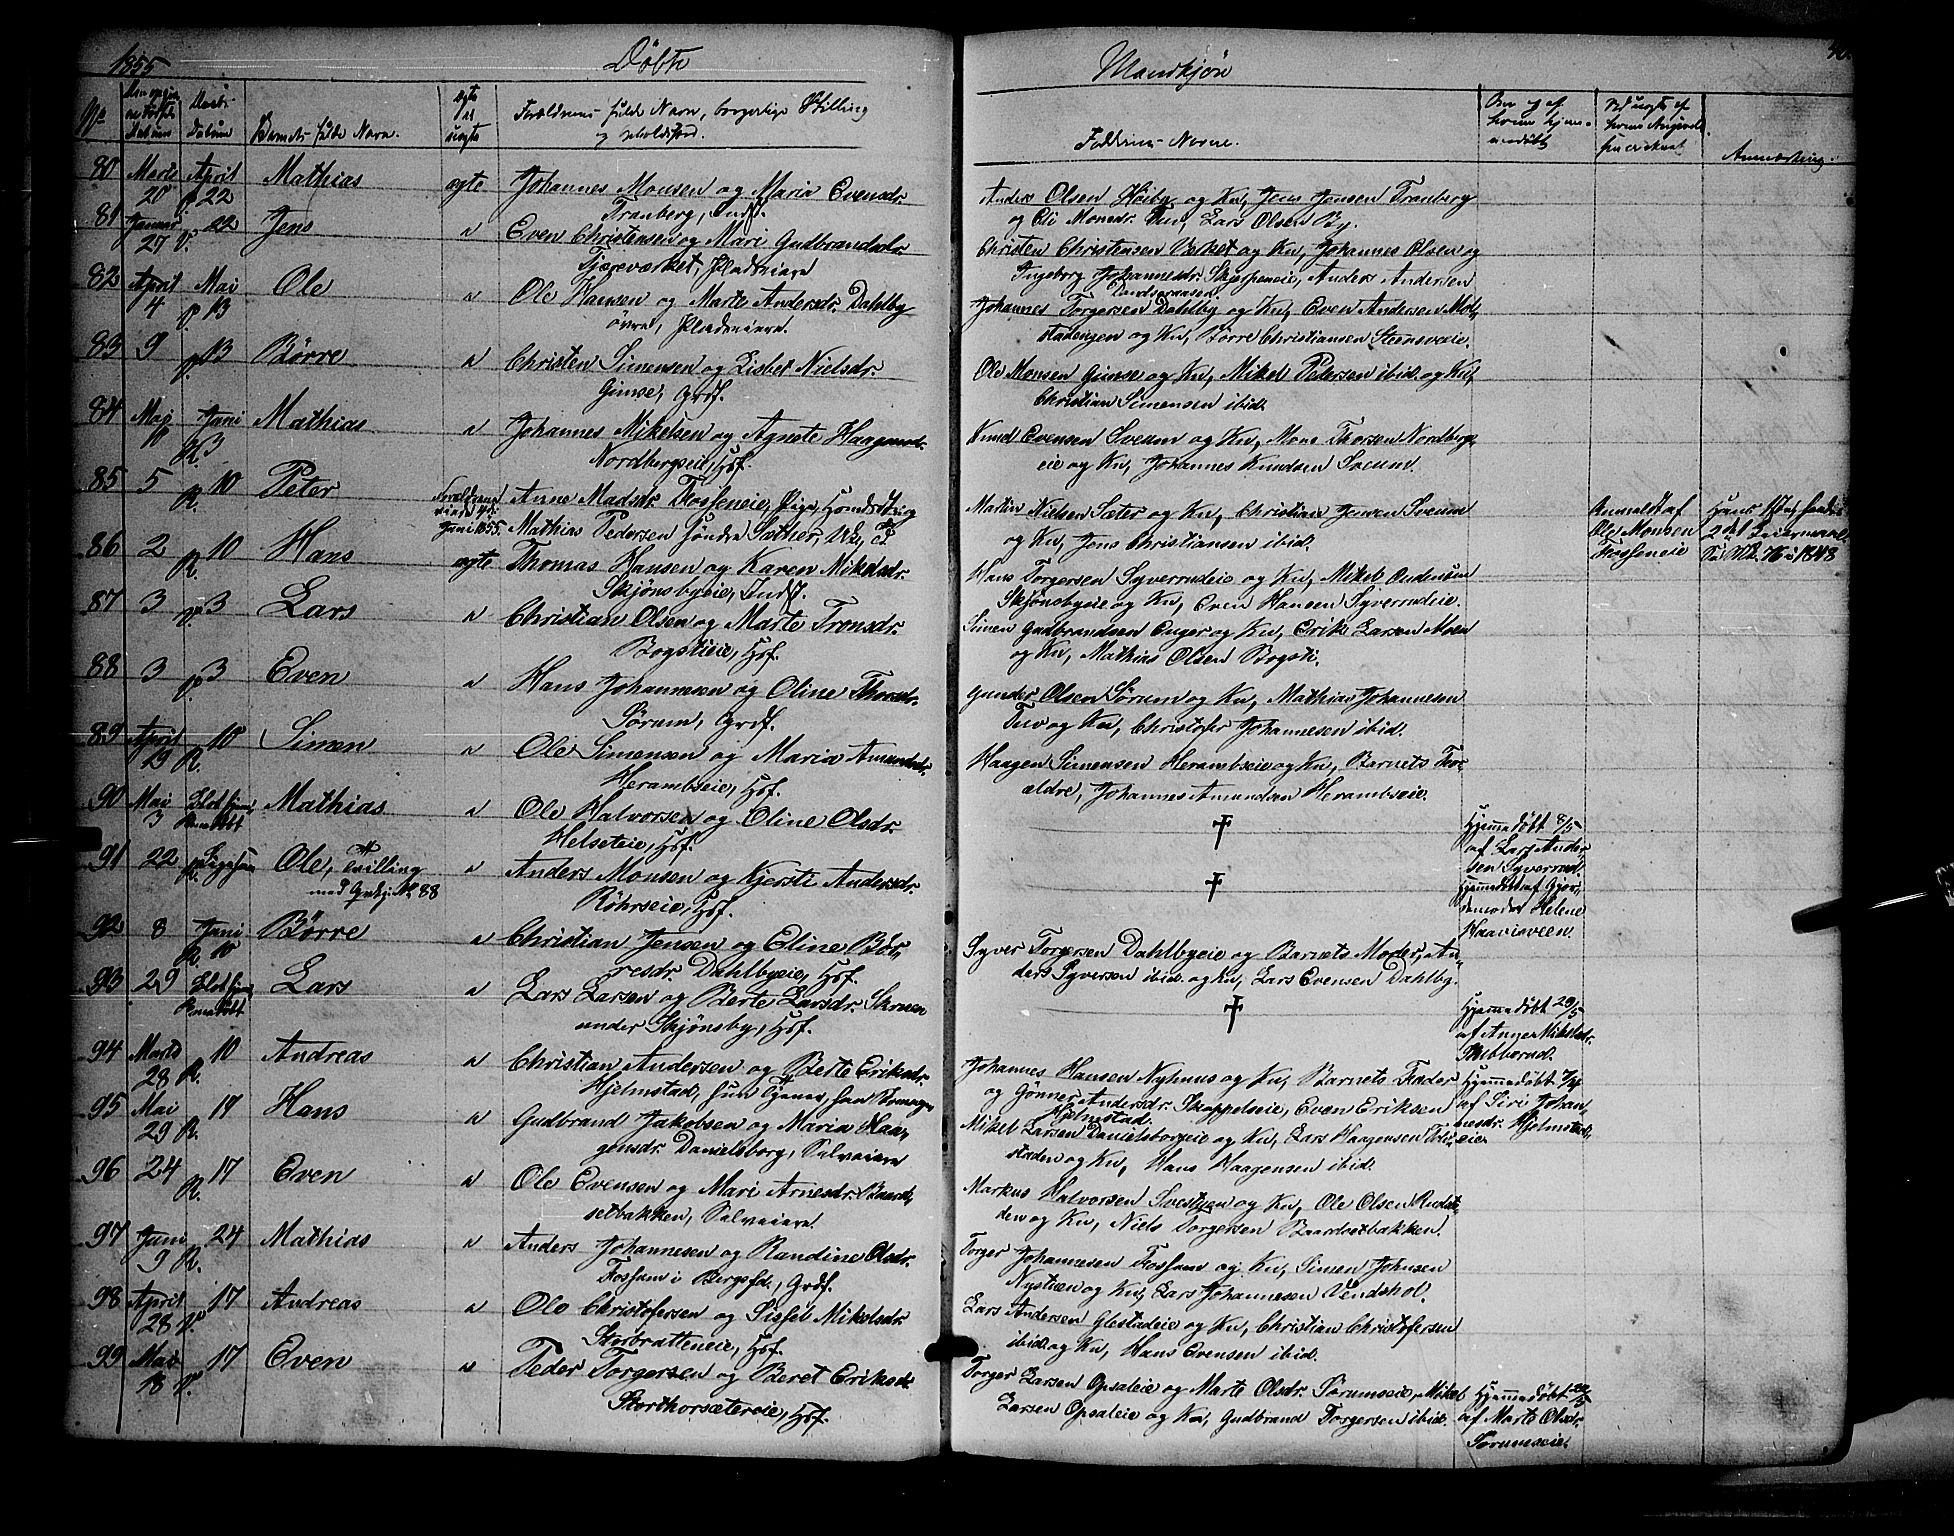 1855
Døbte
Mandkjøn
No
Datum
Daabs-
Datum
Barnets fulde Navn.
Ægte
el
uægte
Forældrenes fulde Navn, borgerlige Stilling
og Opholdssted.
Faddernes Navne.
Anmærkning.
80 Marts April Mathias ægte Johannes Monsen og Maria Evensdr.
20 p. 22 Tranberg, Inds.
Anders Olsen Høiby og Kn, Jens Jensen Tranberg
og Eli Monsdr. Tuv, Lars Olsen By.
81 Januar 22 Jens " Even Christensen og Mari Gudbrandsdr.
27 V. Tjæreværket, Pladseiere
Christen Christensen Verket og Kn, Johannes Olsen og
Ingeborg Johannesdr. Skjerpeneie, Anders Andersen
82 April Mai Ole " Ole Hansen og Marte Andersdr. Dahlby
4 V. 13 øvre, Pladseiere.
Johannes Torgersen Dahlby og Kn, Even Andersen Mol-
stadengen og Kn, Børre Christiansen Steensveie.
83 9 p. 13 Børre " Christen Simensen og Lisbet Nielsdr.
Gimse, Grdf.
Ole Monsen Gimse og Kn, Mikel Pedersen ibid. og Kn,
Christian Simensen ibid.
84 Mai Juni Mathias " Johannes Mikelsen og Agnete Haagensd.
R. 3 Nordbergseie, Hsf.
Knud Evensen Sveum og Kn, Mons Thorsen Nordbergs-
eie og Kn, Johannes Knudsen Sveum.
85 5 R. 10 Peter
Juni 1855.
Anne Madsdr. Fosseneie, Pige,
Mathias Pedersen Søndre Sæther,
Martin Nielsen Sæter og Kn, Christian Jensen Sveum
og Kn, Jens Christiansen ibid.
Anmeldt af
Ole Monsen
Fosseneie
1848
86 2 R. 10 Hans ægte Thomas Hansen og Karen Mikelsdr.
Skjønsbyeie, Inds.
Hans Torgersen Syverrudeie og Kn, Mikel Andersen
Skjønsbyeie og Kn, Even Hansen Syverrudeie.
87 3 V. 3 Lars " Christian Olsen og Marte Tronsdr.
Bogstieie, Hsf.
Simen Gudbrandsen Enger og Kn, Erik Larsen Moen
og Kn, Mathias Olsen Bogsti.
88 3 p. 3 Even " Hans Johannesen og Oline Thorsdr.
Sørum, Grdf.
Gunder Olsen Sørum og Kn, Mathias Johannesen
Tuv og Kn, Christofer Johannesen ibid.
89 April 10 Simen " Ole Simensen og Maria Amundsdr.
19 R. Herambseie, Hsf.
Haagen Simensen Herambseie og Kn, Barnets For-
ældre, Johannes Amundsen Herambseie.
90 Mai Blot hjem- Mathias " Ole Halvorsen og Oline Olsdr.
3 medøbt Helseteie, Hsf.
†
Hjemmedøbt 8/5
af Lars Ander-
sen Syverrud.
91 22 R. Ligesaa Ole, Tvilling " Anders Monsen og Kjersti Andersdr.
med Qvkj. No 88 Røhrseie, Hsf.
†
Hjemmedøbt af Gjor-
demoder Helene
Haavieveen
92 8 Juni Børre " Christian Jensen og Eline Bør-
R. 10 resdr. Dahlbyeie, Hsf.
Syver Torgersen Dahlbyeie og Barnets Moder, An-
ders Syversen ibid. og Kn, Lars Evensen Dahlby.
93 29 Blot hjem- Lars " Lars Larsen og Berte Larsdr. Skruen
medøbt under Skjønsby, Hsf.
†
Hjemmedøbt 29/5
af Anne Mikelsdr.
94 Marts 10 Andreas " Christian Andersen og Berte Eriksdr.
28 R. Hjelmstad, hun Tjener, han
Johannes Hansen Nyhuus og Kn, Barnets Fader
og Gønner Andersdr. Skappelseie, Even Eriksen
Hjelmstad.
Hjemmedøbt 7/4
af Siri Johan-
nesdr. Hjelmstad.
95 Mai 17 Hans " Gudbrand Jakobsen og Maria Haa-
29 R. gensdr. Danielsborg, Selveiere
Mikel Larsen Danielsborgeie og Kn, Lars Haagensen
staden og Kn, Hans Haagensen ibid.
96 24 R. 17 Even " Ole Evensen og Mari Arnesdr. Baard-
setbakken, Selveiere.
Markus Halvorsen Svestyen og Kn, Ole Olsen Rudst-
den og Kn, Niels Torgersen Baardsetbakken.
97 Juni 24 Mathias " Anders Johannesen og Randine Olsdr.
9 R. Fossum i Bergsfd., Grdf.
Torger Johannesen Fossum og Kn, Simen Johnsen
Nystuen og Kn, Lars Johannesen Vendshol.
98 April 17 Andreas " Ole Christofersen og Sissel Mikelsdr.
28 V. Storbratteneie, Hsf.
Lars Andersen Glestadeie og Kn, Christian Christofersen
ibid. og Kn, Hans Evensen ibid.
99 Mai 17 Even " Peder Torgersen og Beret Eriksdr.
18 V. Storthorsætereie, Hsf.
Torger Larsen Opsaleie og Marte Olsdr. Sørumseie, Mikel
Larsen Opsaleie og Kn, Gudbrand Torgersen ibid.
Hjemmedøbt 20/5
af Marte Olsdr.
Sørumseie.